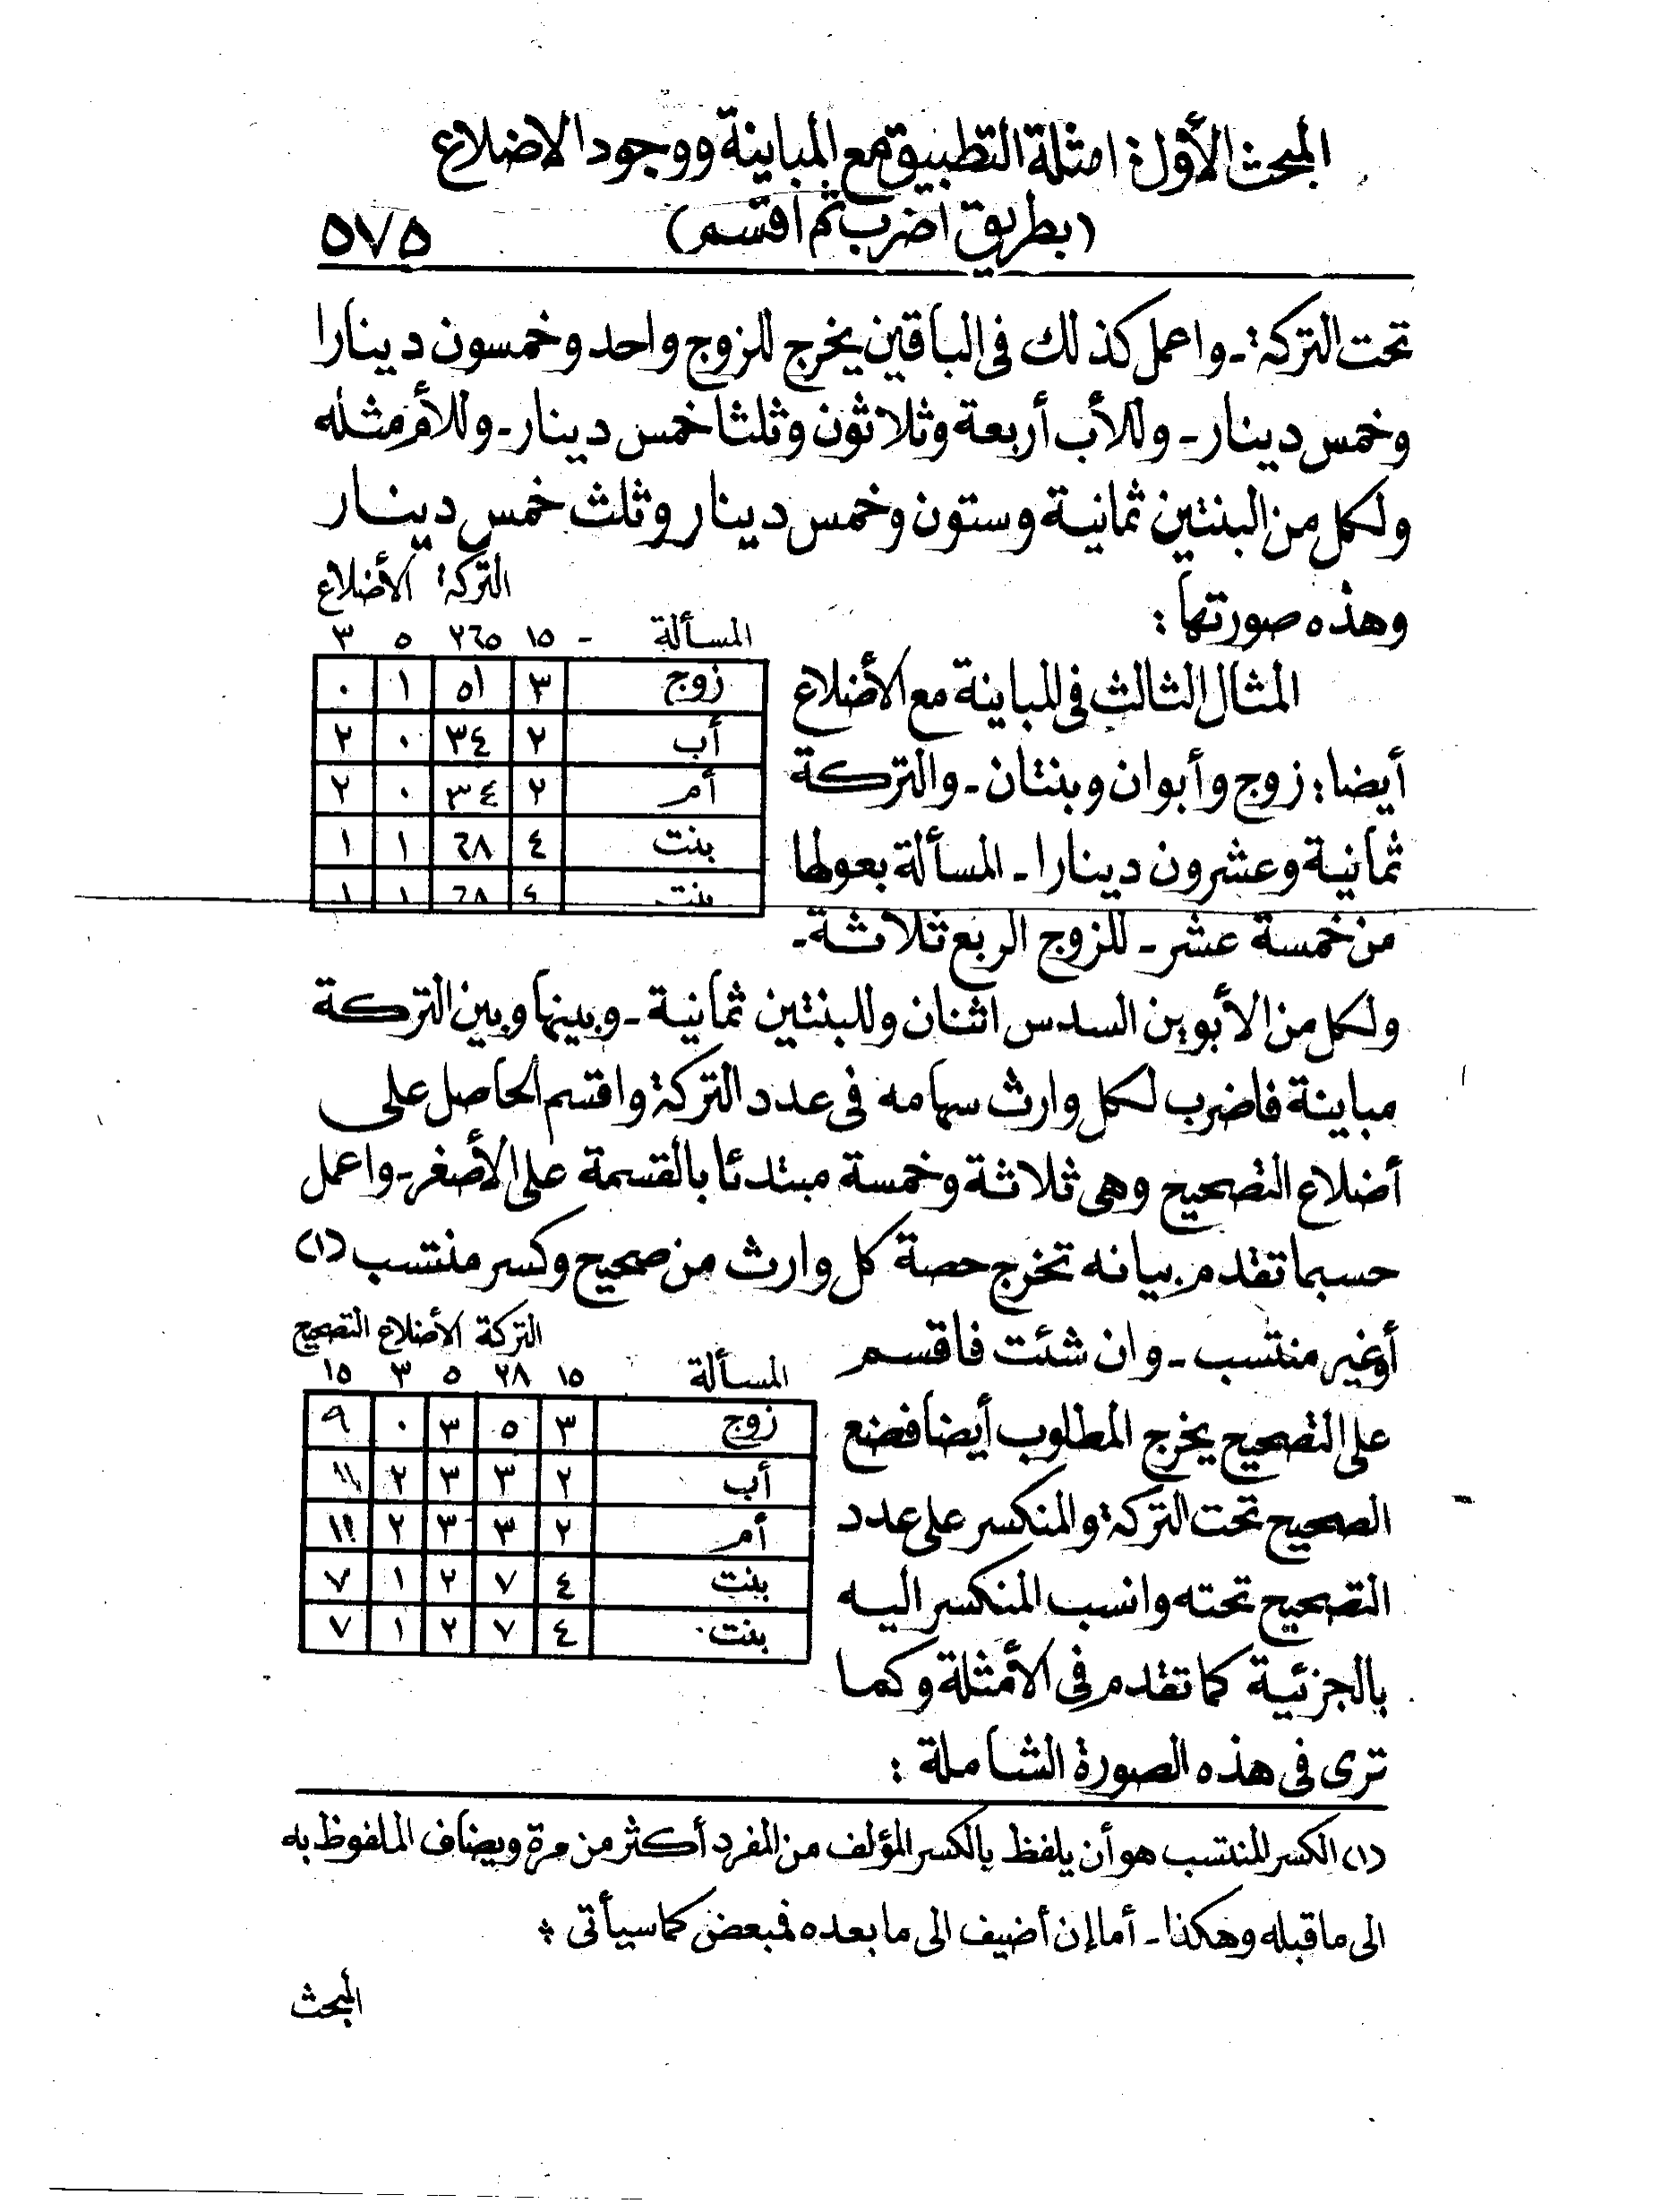 المبحث الأول: امثلة التطبيق مع المباينة ووجود الاضلاع
(بطريق اضرب ثم اقسم)
٥٧٥
تحت التركة:ـ واعمل كذلك فى الباقين يخرج للزوج واحد وخمسون دينارا
وخمس دينار ـ وللأب أربعة وثلاثون وثلثا خمس دينار ـ وللأم مثله
ولكل من البنتين ثمانية وستون وخمس دينار وثلث خمس دينار
وهذه صورتها:
التركة الأضلاع
المسألة - ١٥ ٢٦٥ ٥ ٣
زوج ٣ ٥١ ١ ٠
أب ٢ ٣٤ ٠ ٢
أم ٢ ٣٤ ٠ ٢
بنت ٤ ٦٨ ١ ١
بنت ٤ ٦٨ ١ ١
المثال الثالث فى المباينة مع الأضلاع
أيضا: زوج وأبوان وبنتان ـ والتركة
ثمانية وعشرون دينارا ـ المسألة بعولها
من خمسة عشر ـ للزوج الربع ثلاثة ـ
ولكل من الأبوين السدس اثنان وللبنتين ثمانية ـ وبينها وبين التركة
مباينة فاضرب لكل وارث سهامه فى عدد التركة واقسم الحاصل على
أضلاع التصحيح وهى ثلاثة وخمسة مبتدئا بالقسمة على الأصغر ـ واعمل
حسبما تقدم بيانه تخرج حصة كل وارث من صحيح وكسر منتسب (١)
أوغير منتسب ـ وان شئت فاقسم
على التصحيح يخرج المطلوب أيضا فضع
الصحيح تحت التركة والمنكسر على عدد
التصحيح تحته وانسب المنكسر اليه
بالجزئية كما تقدم فى الأمثلة وكما
ترى فى هذه الصورة الشاملة:
التركة الأضلاع التصحيح
المسألة ١٥ ٢٨ ٥ ٣ ١٥
زوج ٣ ٥ ٣ ٠ ٩
أب ٢ ٣ ٣ ٢ ١١
أم ٢ ٣ ٣ ٢ ١١
بنت ٤ ٧ ٢ ١ ٧
بنت ٤ ٧ ٢ ١ ٧
(١) الكسر المنتسب هو أن يلفظ بالكسر المؤلف من المفرد أكثر من مرة ويضاف الملفوظ به
الى ما قبله وهكذا ـ أما إن أضيف الى ما بعده فمبعض كما سيأتى *
المبحث